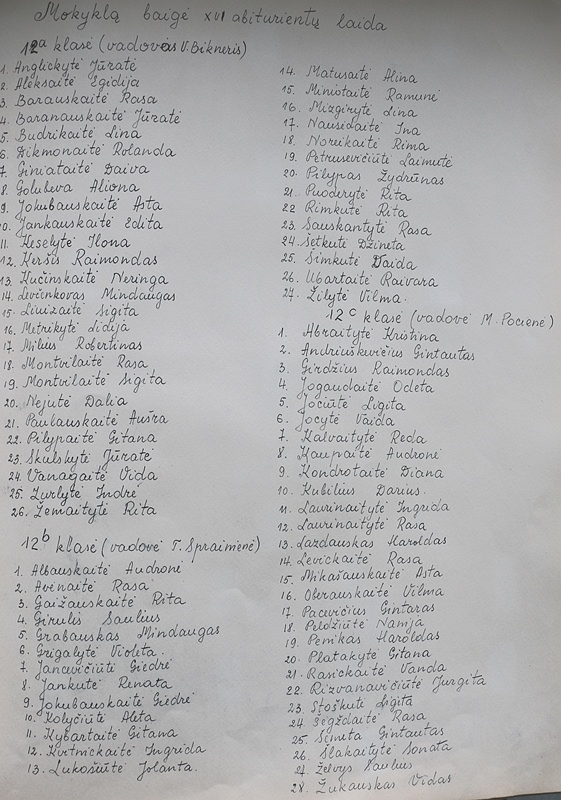 Mokyklą baigė XVI abiturientų laida
12a klasė (vadovas V. Bikneris)
1. Anglickytė Jūratė
2. Aleksaitė Egidija
3. Barauskaitė Rasa
4. Baranauskaitė Jūratė
5. Budrikaitė Lina
6. Dikmonaitė Rolanda
7. Giniataitė Daiva
8. Golubeva Aliona
9. Jokubauskaitė Asta
10. Jankauskaitė Edita
11. Keselytė Ilona
12. Keršis Raimondas
13. Kučinskaitė Neringa
14. Levčenkovas Mindaugas
15. Liuizaitė Sigita
16. Metrikytė Lidija
17. Milius Robertinas
18. Montvilaitė Rasa
19. Montvilaitė Sigita
20. Nejutė Dalia
21. Paulauskaitė Aušra
22. Pilypaitė Gitana
23. Skulskytė Jūratė
24. Vanagaitė Vida
25. Zurlytė Indrė
26. Žemaitytė Rita
12b klasė (vadovė T. Spraimenė)
1. Albauskaitė Audronė
2. Avėnaitė Rasa
3. Gaižauskaitė Rita
4. Girulis Saulius
5. Grabauskas Mindaugas
6. Grigalytė Violeta.
7. Jancevičiūtė Giedrė
8. Jankutė Renata
9. Jokubauskaitė Giedrė
10. Kolyčiūtė Aleta
11. Kybartaitė Gitana
12. Kvitnickaitė Ingrida
13. Lukošiūtė Jolanta.
14. Matusaitė Alina
15. Miniotaitė Ramunė
16. Mizgirytė Lina
17. Nausėdaitė Ina
18. Noreikaitė Rima
19. Petrusevičiūtė Laimutė
20. Pilypas Žydrūnas
21. Puoderytė Rita
22 Rimkutė Rita
23. Sauskantytė Rasa
24. Šetkutė Džineta
25. Šimkutė Daida
26. Ubartaitė Raivara
27. Žilytė Vilma.
12c klasė (vadovė M. Pocienė)
1. Abraitytė Kristina
2. Andriuškevičius Gintautas
3. Girdžius Raimondas
4. Jogaudaitė Odeta
5. Jociūtė Ligita
6. Jocytė Vaida
7. Kalvaitytė Reda
8. Kaupaitė Audronė
9. Kondrotaitė Diana
10. Kubilius Darius.
11. Laurinaitytė Ingrida
12. Laurinaitytė Rasa
13. Lazdauskas Haroldas
14. Levickaitė Rasa
15. Mikašauskaitė Asta
16. Oberauskaitė Vilma
17. Pacevičius Gintaras
18. Peldžiūtė Namija
19. Pemkas Haroldas
20. Platakytė Gitana
21. Ranckaitė Vanda
22. Rizvanavičiūtė Jurgita
23. Stoškutė Ligita
24. Šėgždaitė Rasa
25. Šimeta Gintautas
26. Šlakaitytė Sonata
27. Želvys Saulius
28. Žukauskas Vidas